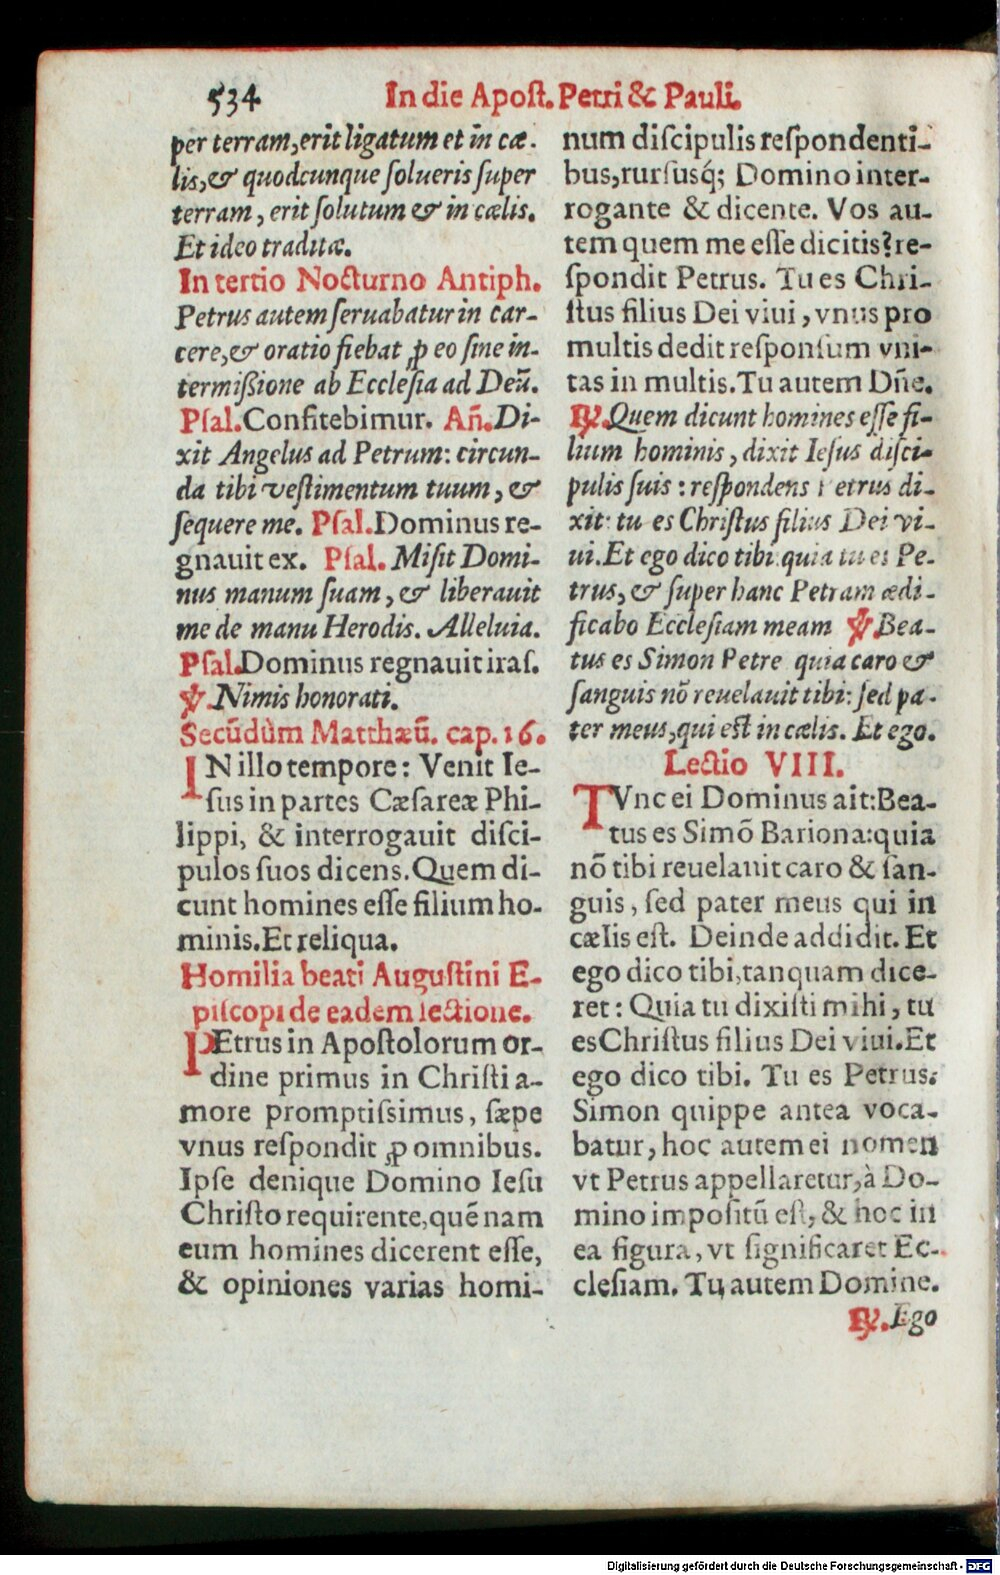 534
In die Apoſt. Petri & Pauli.
per terram, erit ligatum et in cæ-
lis, & quodcunque ſolueris ſuper
terram, erit ſolutum & in cælis.
Et ideo traditæ.
In tertio Nocturno Antiph.
Petrus autem ſeruabatur in car-
cere, & oratio fiebat ꝓ eo ſine in-
termißione ab Eccleſia ad Deū.
Pſal. Confitebimur. Añ. Di-
xit Angelus ad Petrum: circun-
da tibi veſtimentum tuum, &
ſequere me. Pſal. Dominus re-
gnauit ex. Pſal. Miſit Domi-
nus manum ſuam, & liberauit
me de manu Herodis. Alleluia.
Pſal. Dominus regnauit iraſ.
℣. Nimis honorati.
Secūdùm Matthæū. cap. 16.
IN illo tempore: Venit Ie-
ſus in partes Cæſareæ Phi-
lippi, & interrogauit diſci-
pulos ſuos dicens. Quem di-
cunt homines eſſe filium ho-
minis. Et reliqua.
Homilia beati Auguſtini E-
piſcopi de eadem lectione.
PEtrus in Apoſtolorum or-
dine primus in Chriſti a-
more promptiſsimus, ſæpe
vnus reſpondit ꝓ omnibus.
Ipſe denique Domino Ieſu
Chriſto requirente, quē nam
eum homines dicerent eſſe,
& opiniones varias homi-
num diſcipulis reſpondenti-
bus, rurſusq́; Domino inter-
rogante & dicente. Vos au-
tem quem me eſſe dicitis? re-
ſpondit Petrus. Tu es Chri-
ſtus filius Dei viui, vnus pro
multis dedit reſponſum vni-
tas in multis. Tu autem Dñe.
℟. Quem dicunt homines eſſe fi-
lium hominis, dixit Ieſus diſci-
pulis ſuis: reſpondens Petrus di-
xit: tu es Chriſtus filius Dei vi-
ui. Et ego dico tibi quia tu es Pe-
trus, & ſuper hanc Petram ædi-
ficabo Eccleſiam meam ℣. Bea-
tus es Simon Petre quia caro &
ſanguis nō reuelauit tibi: ſed pa-
ter meus, qui eſt in cælis. Et ego.
Lectio VIII.
TVnc ei Dominus ait: Bea-
tus es Simō Bariona: quia
nō tibi reuelauit caro & ſan-
guis, ſed pater meus qui in
cælis eſt. Deinde addidit. Et
ego dico tibi, tanquam dice-
ret: Quia tu dixiſti mihi, tu
es Chriſtus filius Dei viui. Et
ego dico tibi. Tu es Petrus:
Simon quippe antea voca-
batur, hoc autem ei nomen
vt Petrus appellaretur, à Do-
mino impoſitū eſt, & hoc in
ea figura, vt ſignificaret Ec-
cleſiam. Tu autem Domine.
℟. Ego
Digitalisierung gefördert durch die Deutsche Forschungsgemeinschaft - DFG